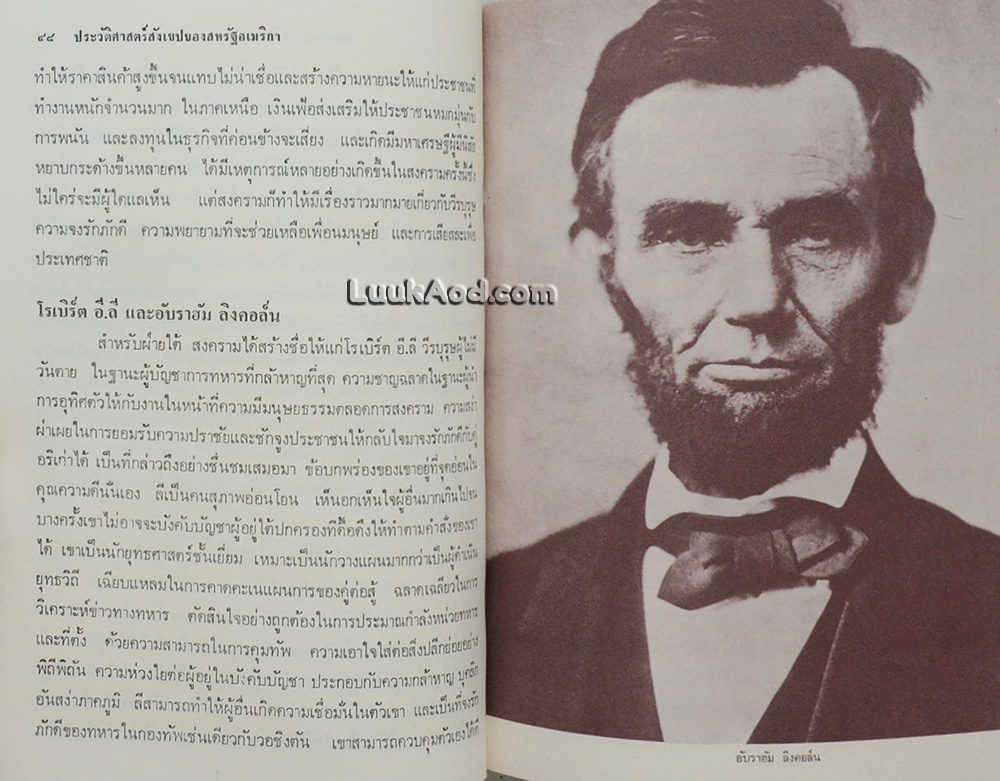 ๔๘ ประวัติศาสตร์สังเขปของสหรัฐอเมริกา
ทำให้ราคาสินค้าสูงขึ้นจนแทบไม่น่าเชื่อและสร้างความหายนะให้แก่ประชาชนที่
ทำงานหนักจำนวนมาก ในภาคเหนือ เงินเฟ้อส่งเสริมให้ประชาชนหมกมุ่นกับ
การพนัน และลงทุนในธุรกิจที่ค่อนข้างจะเสี่ยง และเกิดมีมหาเศรษฐีผู้มีนิสัย
หยาบกระด้างขึ้นหลายคน ได้มีเหตุการณ์หลายอย่างเกิดขึ้นในสงครามครั้งนี้ซึ่ง
ไม่ใคร่จะมีผู้ใดแลเห็น แต่สงครามก็ทำให้มีเรื่องราวมากมายเกี่ยวกับวีรบุรุษ
ความจงรักภักดี ความพยายามที่จะช่วยเหลือเพื่อนมนุษย์ และการเสียสละเพื่อ
ประเทศชาติ
LuukAod.com
โรเบิร์ต อี.ลี และอับราฮัม ลิงคอล์น
สำหรับฝ่ายใต้ สงครามได้สร้างชื่อให้แก่โรเบิร์ต อี.ลี วีรบุรุษผู้ไม่มี
วันตาย ในฐานะผู้บัญชาการทหารที่กล้าหาญที่สุด ความชาญฉลาดในฐานะผู้นำ
การอุทิศตัวให้กับงานในหน้าที่ความมีมนุษยธรรมตลอดการสงคราม ความสง่า
ผ่าเผยในการยอมรับความปราชัยและชักจูงประชาชนให้กลับใจมาจงรักภักดีกับคู่
อริเก่าได้ เป็นที่กล่าวถึงอย่างชื่นชมเสมอมา ข้อบกพร่องของเขาอยู่ที่จุดอ่อนใน
คุณความดีนั่นเอง ลีเป็นคนสุภาพอ่อนโยน เห็นอกเห็นใจผู้อื่นมากเกินไปจน
บางครั้งเขาไม่อาจจะบังคับบัญชาผู้อยู่ใต้ปกครองที่ดื้อดึงให้ทำตามคำสั่งของเขา
ได้ เขาเป็นนักยุทธศาสตร์ชั้นเยี่ยม เหมาะเป็นนักวางแผนมากกว่าเป็นผู้ดำเนิน
ยุทธวิถี เฉียบแหลมในการคาดคะเนแผนการของคู่ต่อสู้ ฉลาดเฉลียวในการ
วิเคราะห์ข่าวทางทหาร ตัดสินใจอย่างถูกต้องในการประมาณกำลังหน่วยทหาร
และที่ตั้ง ด้วยความสามารถในการคุมทัพ ความเอาใจใส่ต่อสิ่งปลีกย่อยอย่าง
พิถีพิถัน ความห่วงใยต่อผู้อยู่ในบังคับบัญชา ประกอบกับความกล้าหาญ บุคลิก
อันสง่าภาคภูมิ ลีสามารถทำให้ผู้อื่นเกิดความเชื่อมั่นในตัวเขา และเป็นที่จงรัก
ภักดีของทหารในกองทัพเช่นเดียวกับวอชิงตัน เขาสามารถควบคุมตัวเองได้ดี
อับราฮัม ลิงคอล์น